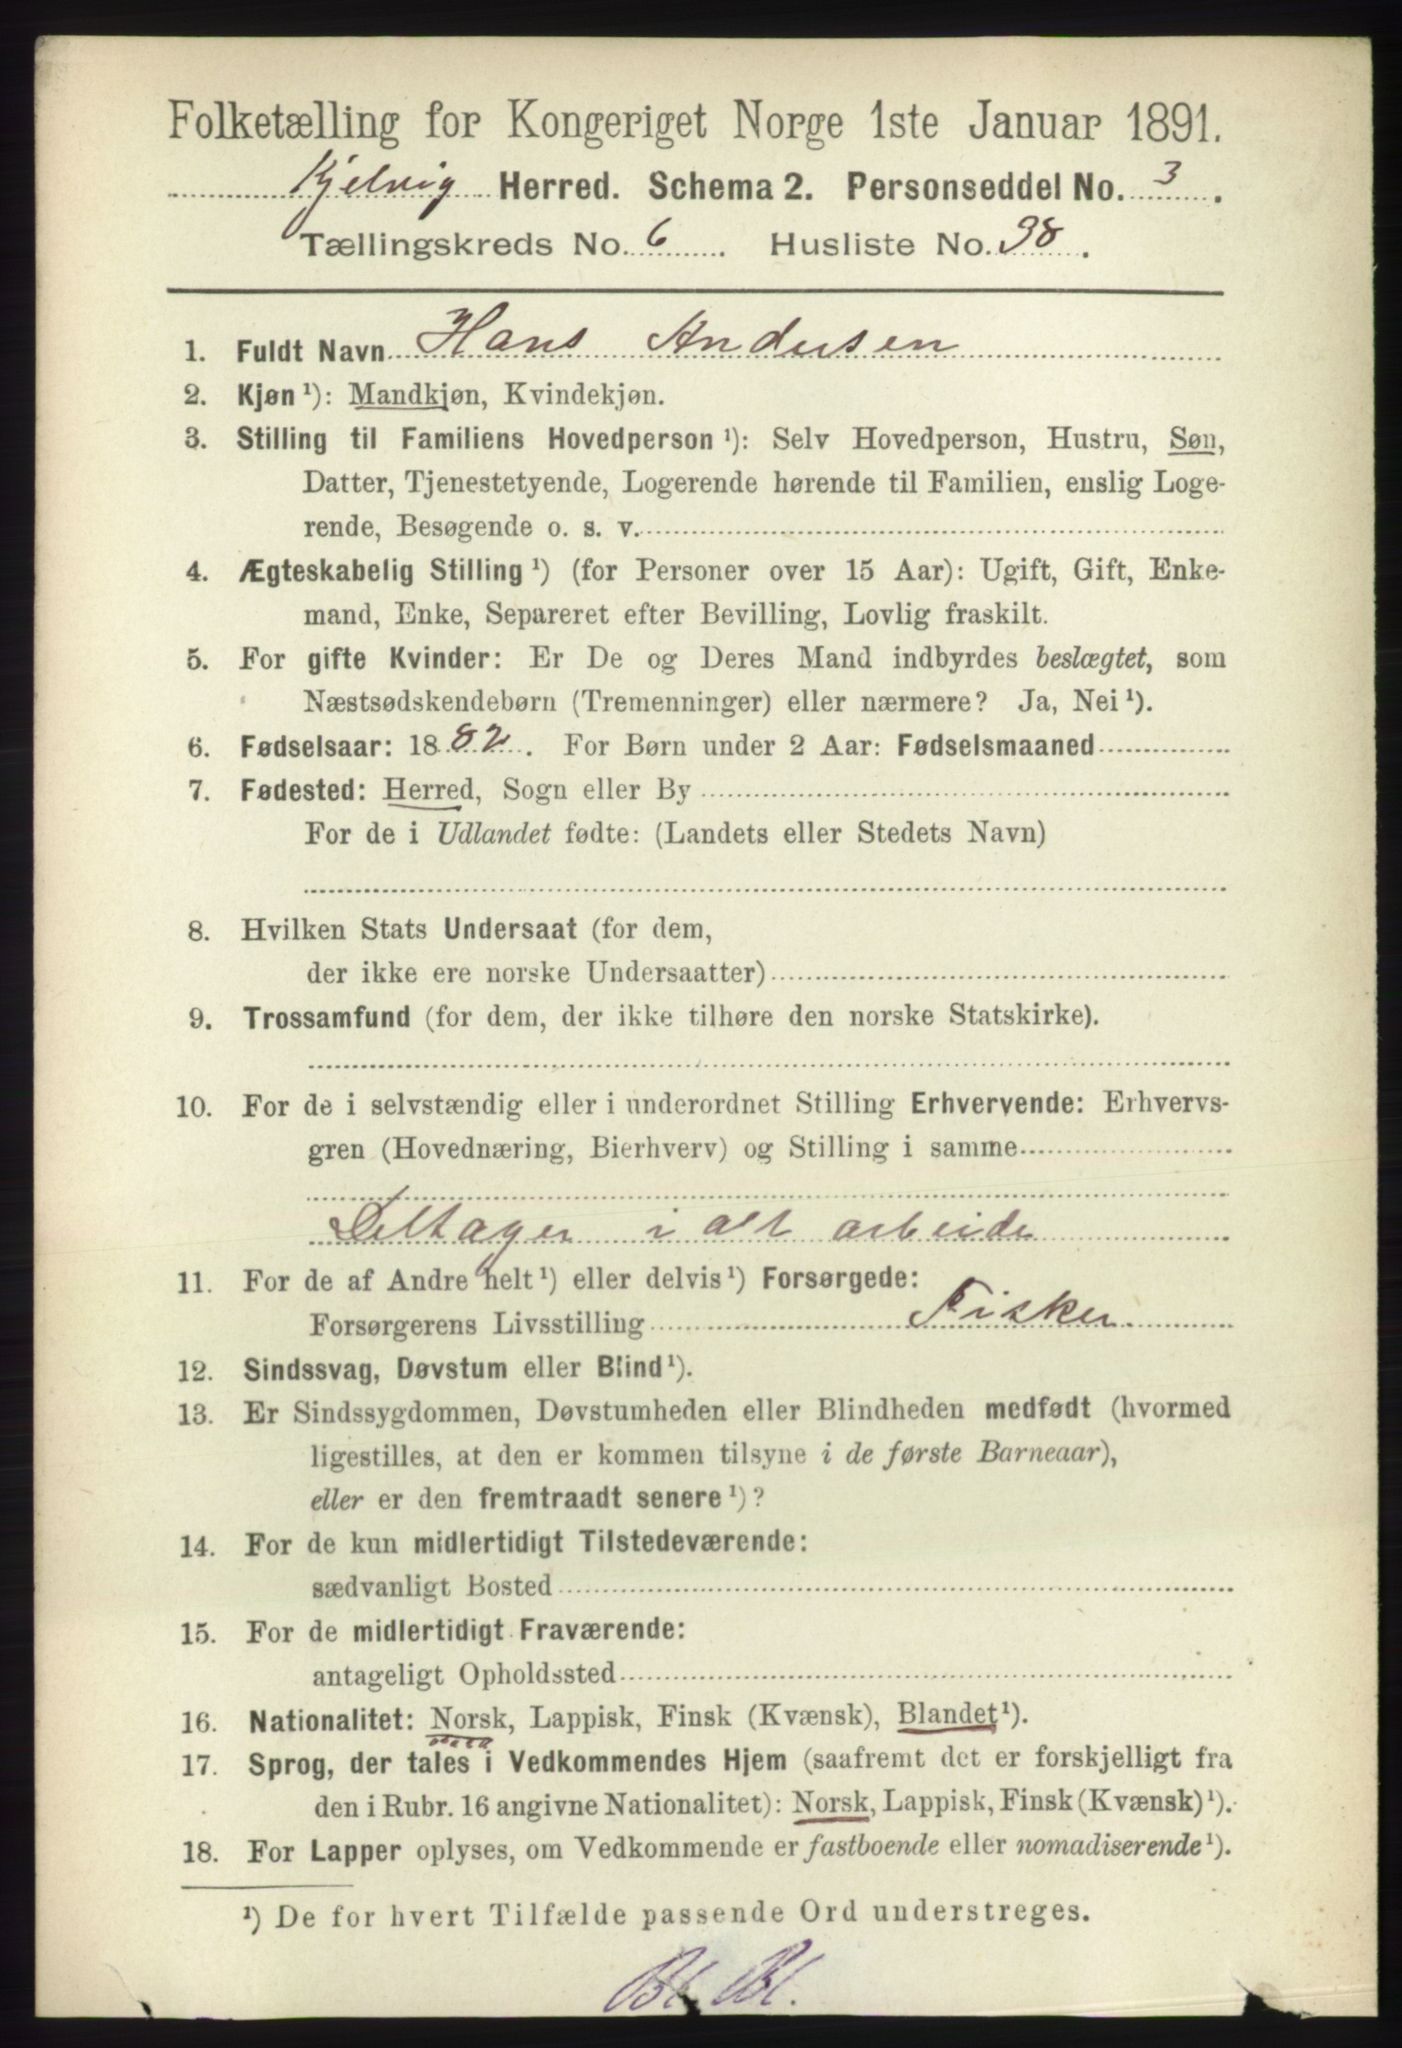 Folketælling for Kongeriget Norge 1ste Januar 1891.
Kjelvig Herred. Schema 2. Personseddel No. 3.
Tællingskreds No. 6. Husliste No. 38.
1. Fuldt Navn Hans Andersen
2. Kjøn ¹): Mandkjøn, Kvindekjøn.
3. Stilling til Familiens Hovedperson ¹): Selv Hovedperson, Hustru, Søn,
Datter, Tjenestetyende, Logerende hørende til Familien, enslig Loge-
rende, Besøgende o. s. v.
4. Ægteskabelig Stilling ¹) (for Personer over 15 Aar): Ugift, Gift, Enke-
mand, Enke, Separeret efter Bevilling, Lovlig fraskilt.
5. For gifte Kvinder: Er De og Deres Mand indbyrdes beslægtet, som
Næstsødskendebørn (Tremenninger) eller nærmere? Ja, Nei ¹).
6. Fødselsaar: 1882. For Børn under 2 Aar: Fødselsmaaned
7. Fødested: Herred, Sogn eller By
For de i Udlandet fødte: (Landets eller Stedets Navn)
8. Hvilken Stats Undersaat (for dem,
der ikke ere norske Undersaatter)
9. Trossamfund (for dem, der ikke tilhøre den norske Statskirke).
10. For de i selvstændig eller i underordnet Stilling Erhvervende: Erhvervs-
gren (Hovednæring, Bierhverv) og Stilling i samme
Deltager i alt arbeide
11. For de af Andre helt ¹) eller delvis ¹) Forsørgede:
Forsørgerens Livsstilling Fisker
12. Sindssvag, Døvstum eller Blind ¹).
13. Er Sindssygdommen, Døvstumheden eller Blindheden medfødt (hvormed
ligestilles, at den er kommen tilsyne i de første Barneaar),
eller er den fremtraadt senere ¹)?
14. For de kun midlertidigt Tilstedeværende:
sædvanligt Bosted
15. For de midlertidigt Fraværende:
antageligt Opholdssted
16. Nationalitet: Norsk, Lappisk, Finsk (Kvænsk), Blandet ¹).
17. Sprog, der tales i Vedkommendes Hjem (saafremt det er forskjelligt fra
den i Rubr. 16 angivne Nationalitet): Norsk, Lappisk, Finsk (Kvænsk) ¹).
18. For Lapper oplyses, om Vedkommende er fastboende eller nomadiserende ¹).
¹) De for hvert Tilfælde passende Ord understreges.
Bl. Bl.